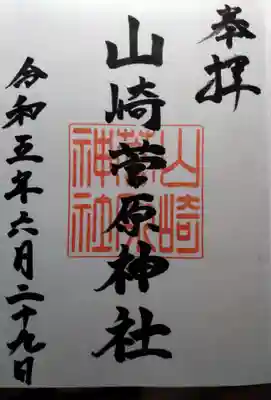 奉拝
山崎菅原神社
令和五年六月二十九日
山崎
菅原
神社